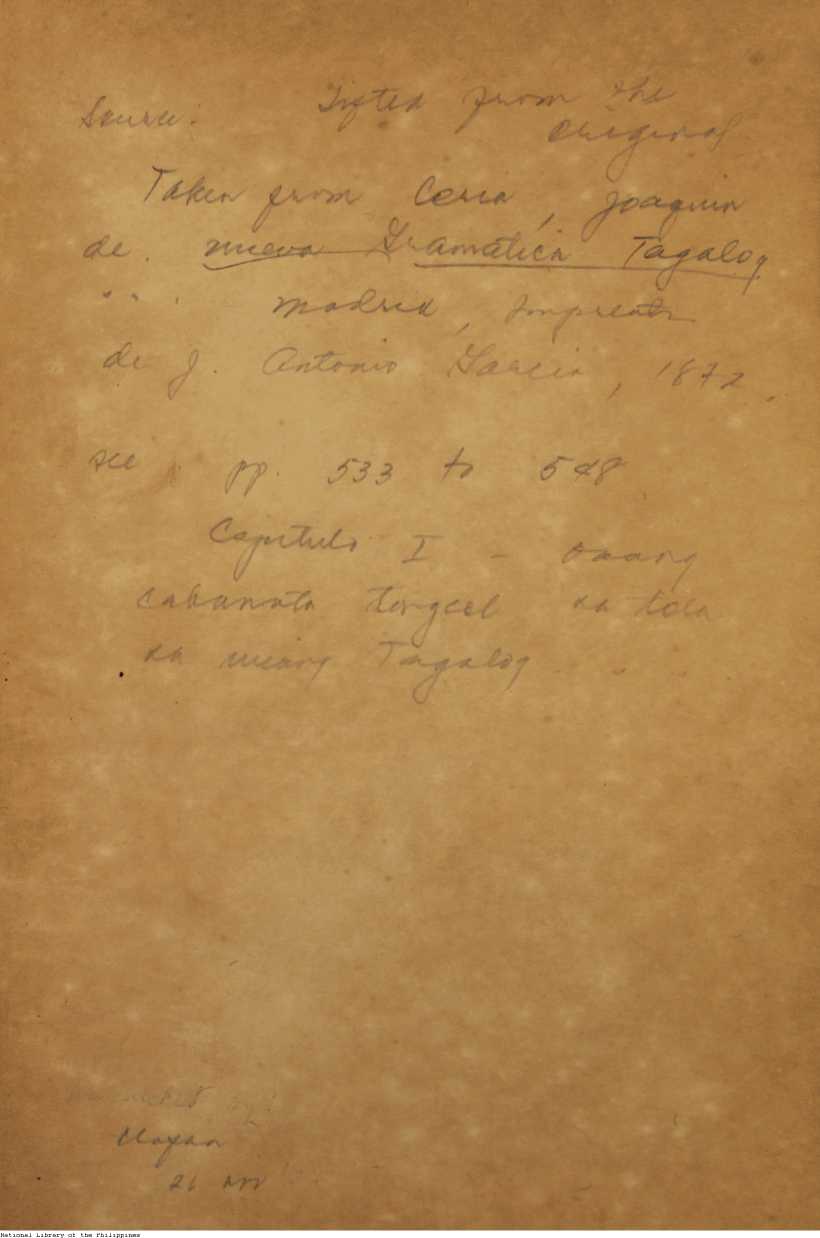 Source: Lifted from the
original
Taken from Coria, Joaquin
de. nueva Gramatica Tagalog
" " . Madrid, Imprenta
de J. Antonio Garcia, 1872.
see pp. 533 to 548
Capitulo I -
cabanata tongcol sa tola
sa wicang Tagalog
21
National Library of the Philippines